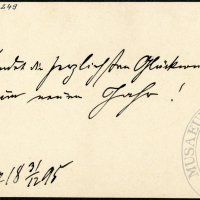 249
sendet die herzlichsten Glückwün
zum neuen Jahr!
18 31/12 95
MUSAEUM